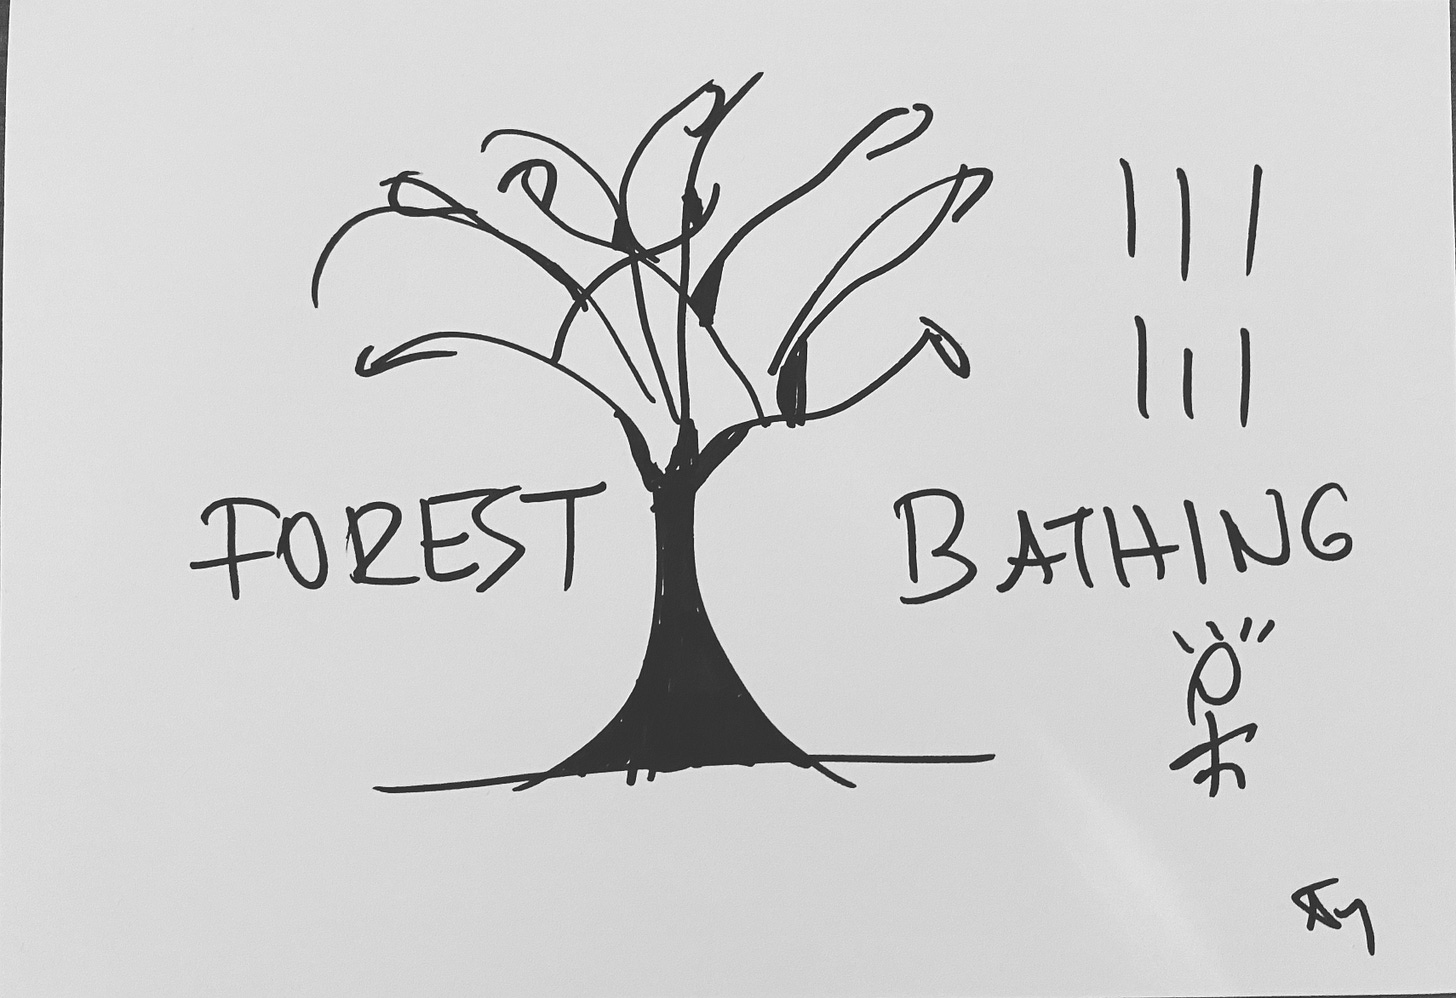 FOREST BATHING